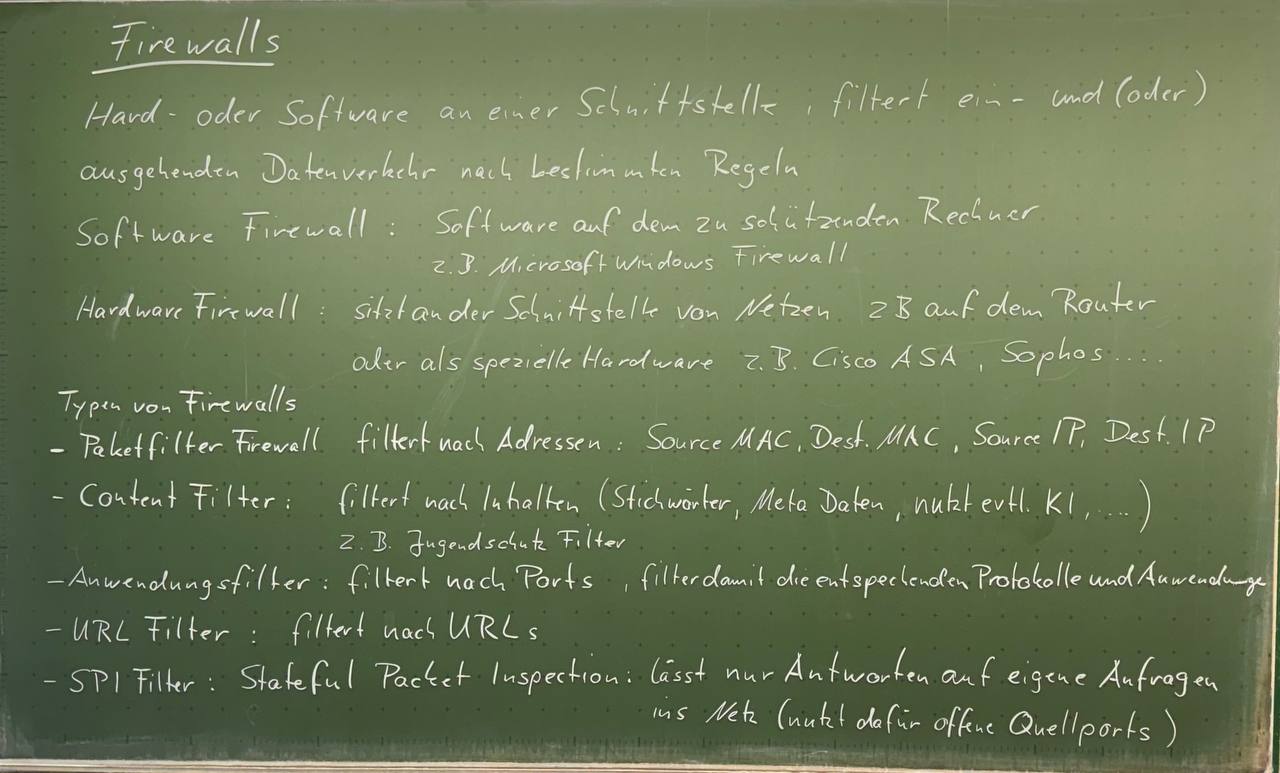 Firewalls
Hard- oder Software an einer Schnittstelle, filtert ein- und (oder)
ausgehenden Datenverkehr nach bestimmten Regeln
Software Firewall : Software auf dem zu schützenden Rechner
z.B. Microsoft Windows Firewall
Hardware Firewall : sitzt an der Schnittstelle von Netzen zB auf dem Router
oder als spezielle Hardware z.B. Cisco ASA, Sophos....
Typen von Firewalls
- Paketfilter Firewall filtert nach Adressen : Source MAC, Dest. MAC, Source IP, Dest. IP
- Content Filter : filtert nach Inhalten (Stichwörter, Meta Daten, nutzt evtl. KI, ....)
z.B. Jugendschutz Filter
- Anwendungsfilter : filtert nach Ports, filter damit die entspechenden Protokolle und Anwendunge
- URL Filter : filtert nach URLs
- SPI Filter : Stateful Packet Inspection : lässt nur Antworten auf eigene Anfragen
ins Netz (nutzt dafür offene Quellports)